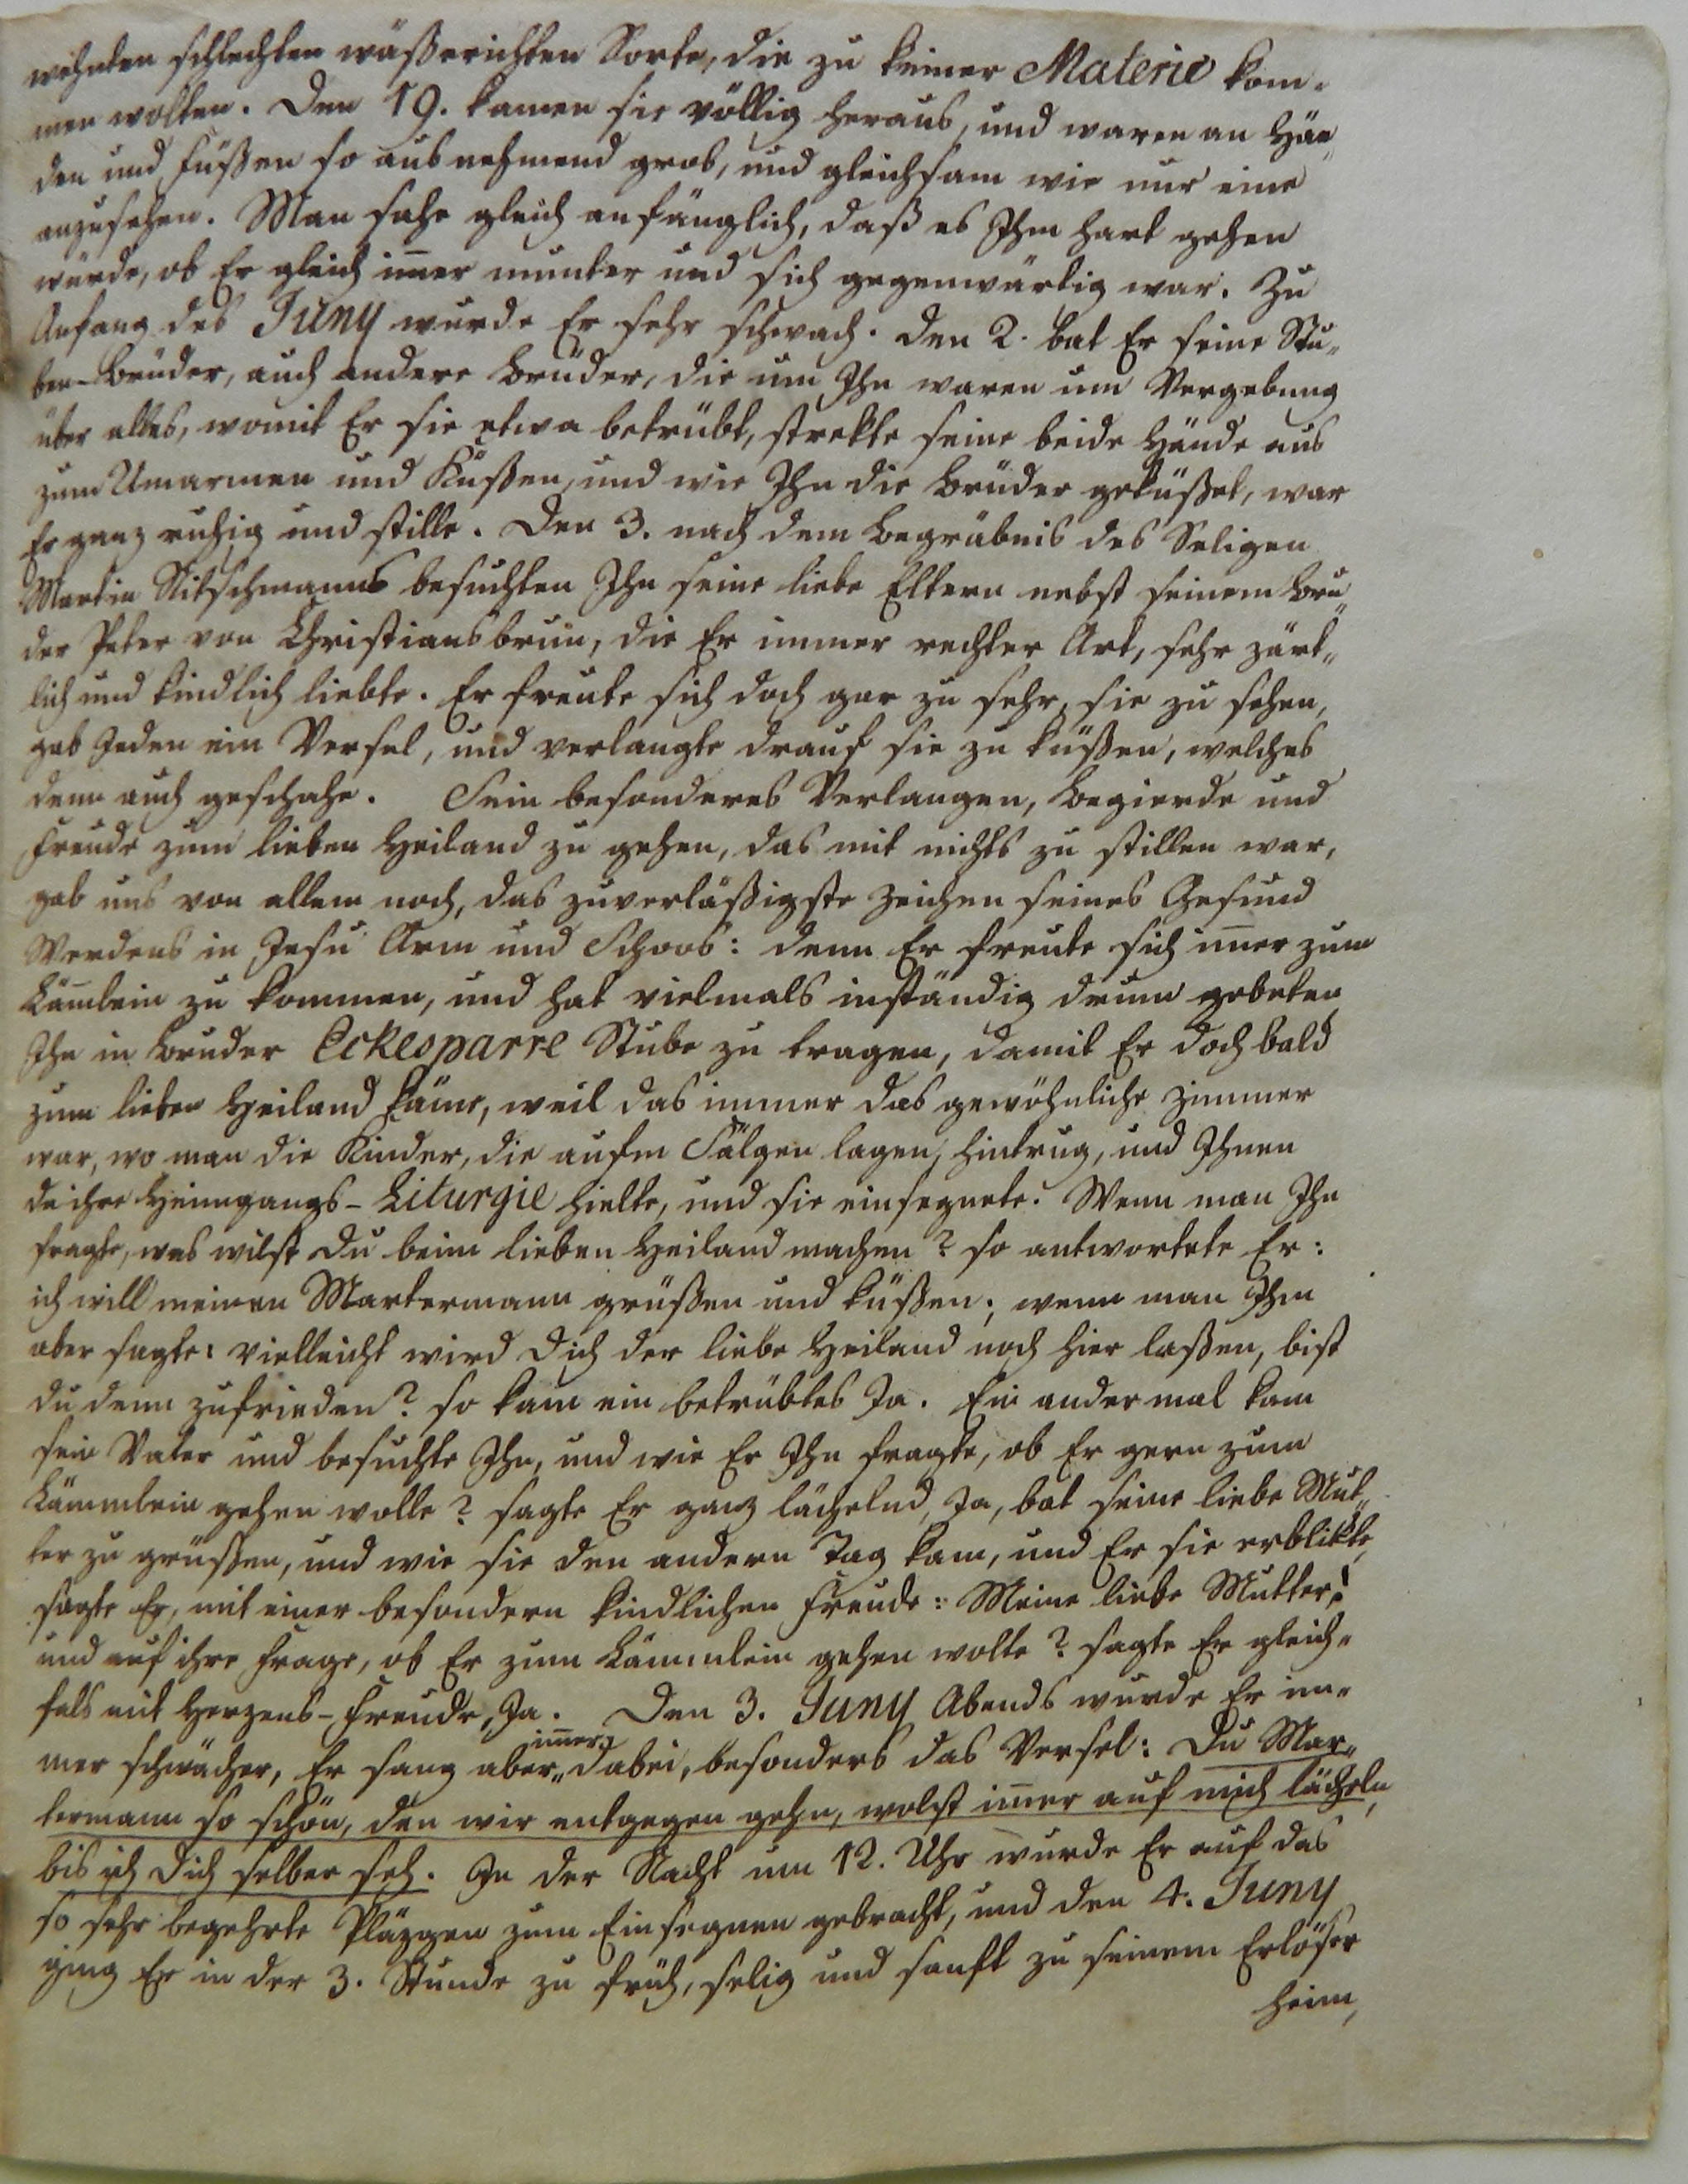 wehnten schlechten wäßerichten Sorte, die zu keiner Materie kom-
men wolten. Den 19. kamen sie völlig heraus, und waren an Hän„
den und Füßen so ausnehmend grob, und gleichsam wie nur eine
anzusehen. Man sahe gleich anfänglich, daß es Ihm hart gehen
würde, ob Er gleich im̅er munter und sich gegenwärtig war. Zu
Anfang des Juny wurde Er sehr schwach. Den 2. bat Er seine Stu„
ben-Brüder, auch andere Brüder, die um Ihn waren um Vergebung
über alles, womit Er sie etwa betrübt, strekte seine beide Hände aus
zum Umarmen und Küßen, und wie Ihn die Brüder geküßet, war
Er ganz ruhig und stille. Den 3. nach dem Begräbnis des Seligen
Martin Nitschmanns besuchten Ihn seine liebe Eltern nebst seinem Bru„
der Peter von Christiansbrun, die Er immer rechter Art, sehr zärt„
lich und kindlich liebte. Er freute sich doch gar zu sehr, sie zu sehen,
gab Jeden ein Versel, und verlangte drauf sie zu küßen, welches
denn auch geschahe. Sein besonderes Verlangen, Begierde und
Freude zum lieben Heiland zu gehen, das mit nichts zu stillen war,
gab uns von allem noch, das zuverläßigste Zeichen seines Gesund
Werdens in Jesu Arm und Schoos: denn Er freute sich im̅er zum
Läm̅lein zu kommen, und hat vielmals inständig drum gebeten
Ihn in Bruder Eckesparre Stube zu tragen, damit Er doch bald
zum lieben Heiland käme, weil das immer das gewöhnliche Zimmer
war, wo man die Kinder, die aufm Fälgen lagen, hintrug, und Ihnen
da ihre Heimgangs-Liturgie hielte, und sie einsegnete. Wenn man Ihn
fragte, was wilst Du beim lieben Heiland machen? so antwortete Er:
ich will meinen Martermann grüßen und küßen; wenn man Ihm
aber sagte: vielleicht wird Dich der liebe Heiland noch hier laßen, bist
du denn zufrieden? so kam ein betrübtes Ja. Ein andermal kam
sein Vater und besuchte Ihn, und wie Er Ihn fragte, ob Er gern zum
Lämmlein gehen wolle? sagte Er ganz lächelnd, Ja, bat seine liebe Mut„
ter zu grüßen, und wie sie den andern Tag kam, und Er sie erblikte,
sagte Er, mit einer besondern kindlichen Freude: Meine liebe Mutter!
und auf ihre Frage, ob Er zum Lämmlein gehen wolte? sagte Er gleich„
fals mit Herzens-Freude, Ja. Den 3. Juny Abends wurde Er im„
mer schwächer, Er sang aber im̅er dabei, besonders das Versel: Du Mar„
termann so schön, den wir entgegen gehn, wolst im̅er auf mich lächeln,
bis ich Dich selber seh. In der Nacht um 12. Uhr wurde Er auf das
so sehr begehrte Pläzgen zum Einsegnen gebracht, und den 4. Juny
ging Er in der 3. Stunde zu früh, selig und sanft zu seinem Erlöser
heim,